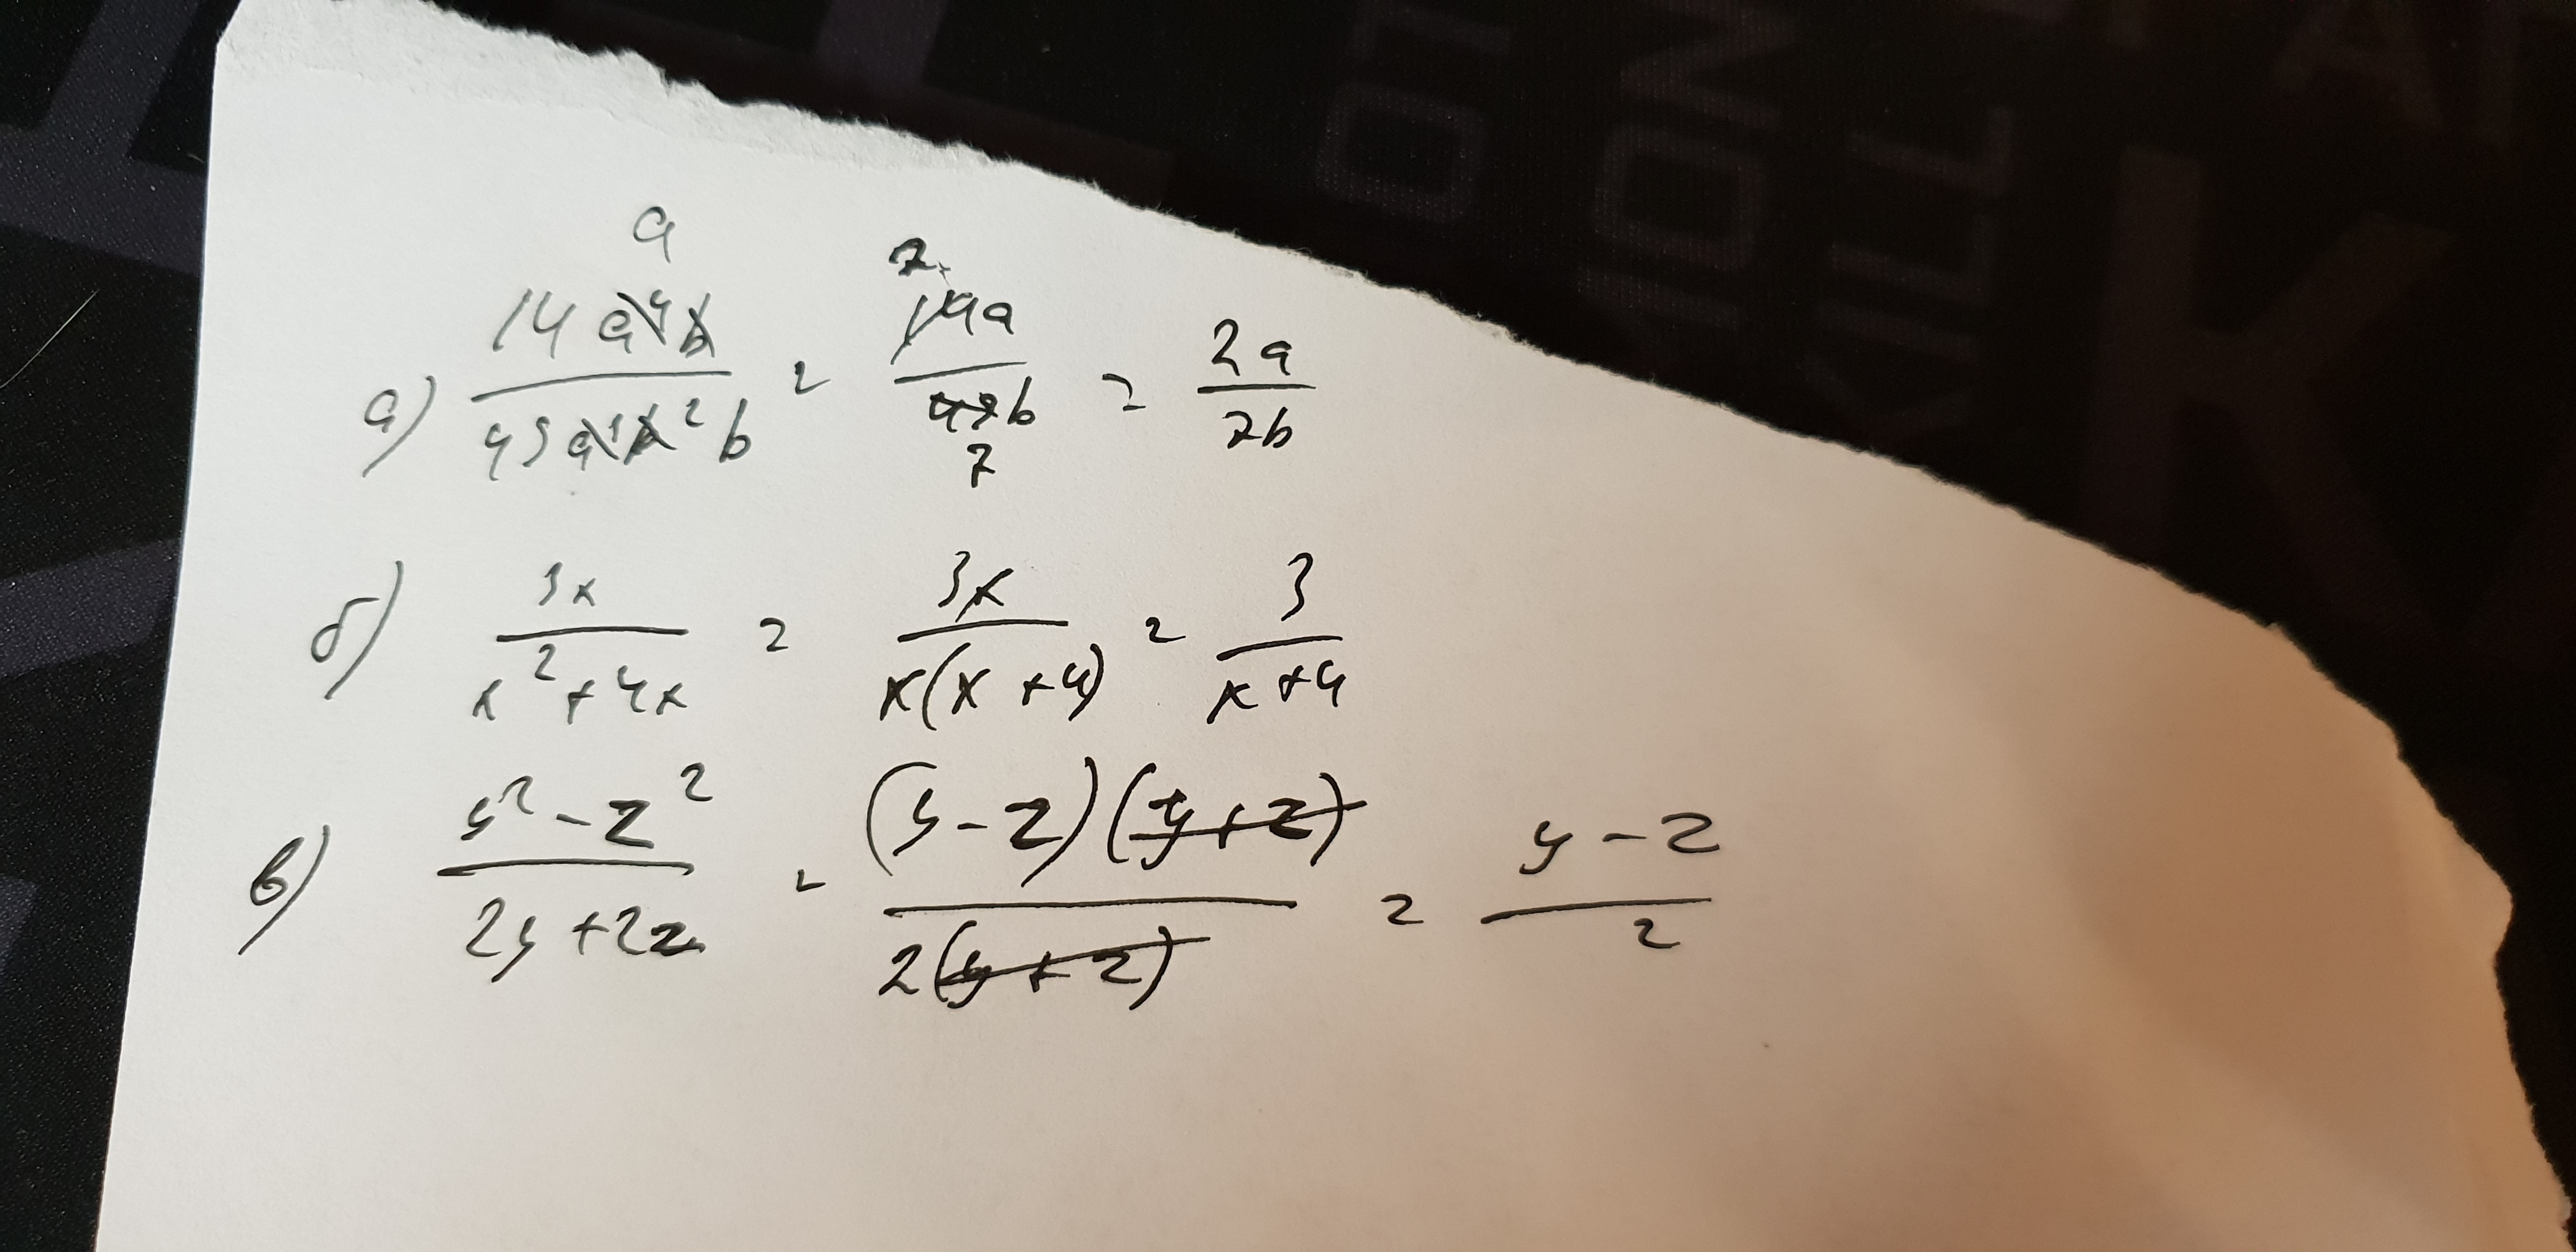 а) 14a⁴b / 49a³b² = 14a / 49b = 2a / 7b
б) 3x / x² + 4x = 3x / x(x + 4) = 3 / x + 4
в) y² - z² / 2y + 2z = (y - z)(y + z) / 2(y + z) = y - z / 2